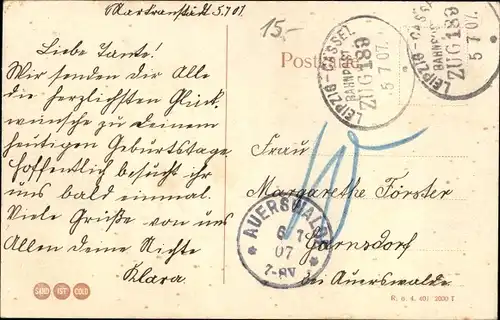 Markranstädt 5.7.07.
15.-
Liebe Tante!
Wir senden dir Alle
die herzlichsten Glück
wünsche zu deinem
heutigen Geburtstage.
Hoffentlich besucht ihr
uns bald einmal.
Viele Grüße von uns
Allen deine Nichte
Klara.
SAND IST GOLD
Postkarte
LEIPZIG-CASSEL
BAHNPOST
ZUG 189
5 7 07.
LEIPZIG-CASSEL
BAHNPOST
ZUG 189
5 7 07.
Frau
Margarethe Förster
Garnsdorf
bei Auerswalde.
AUERSWALDE
6 7
07
7-8V
R. 6. 4. 07. 2000 I